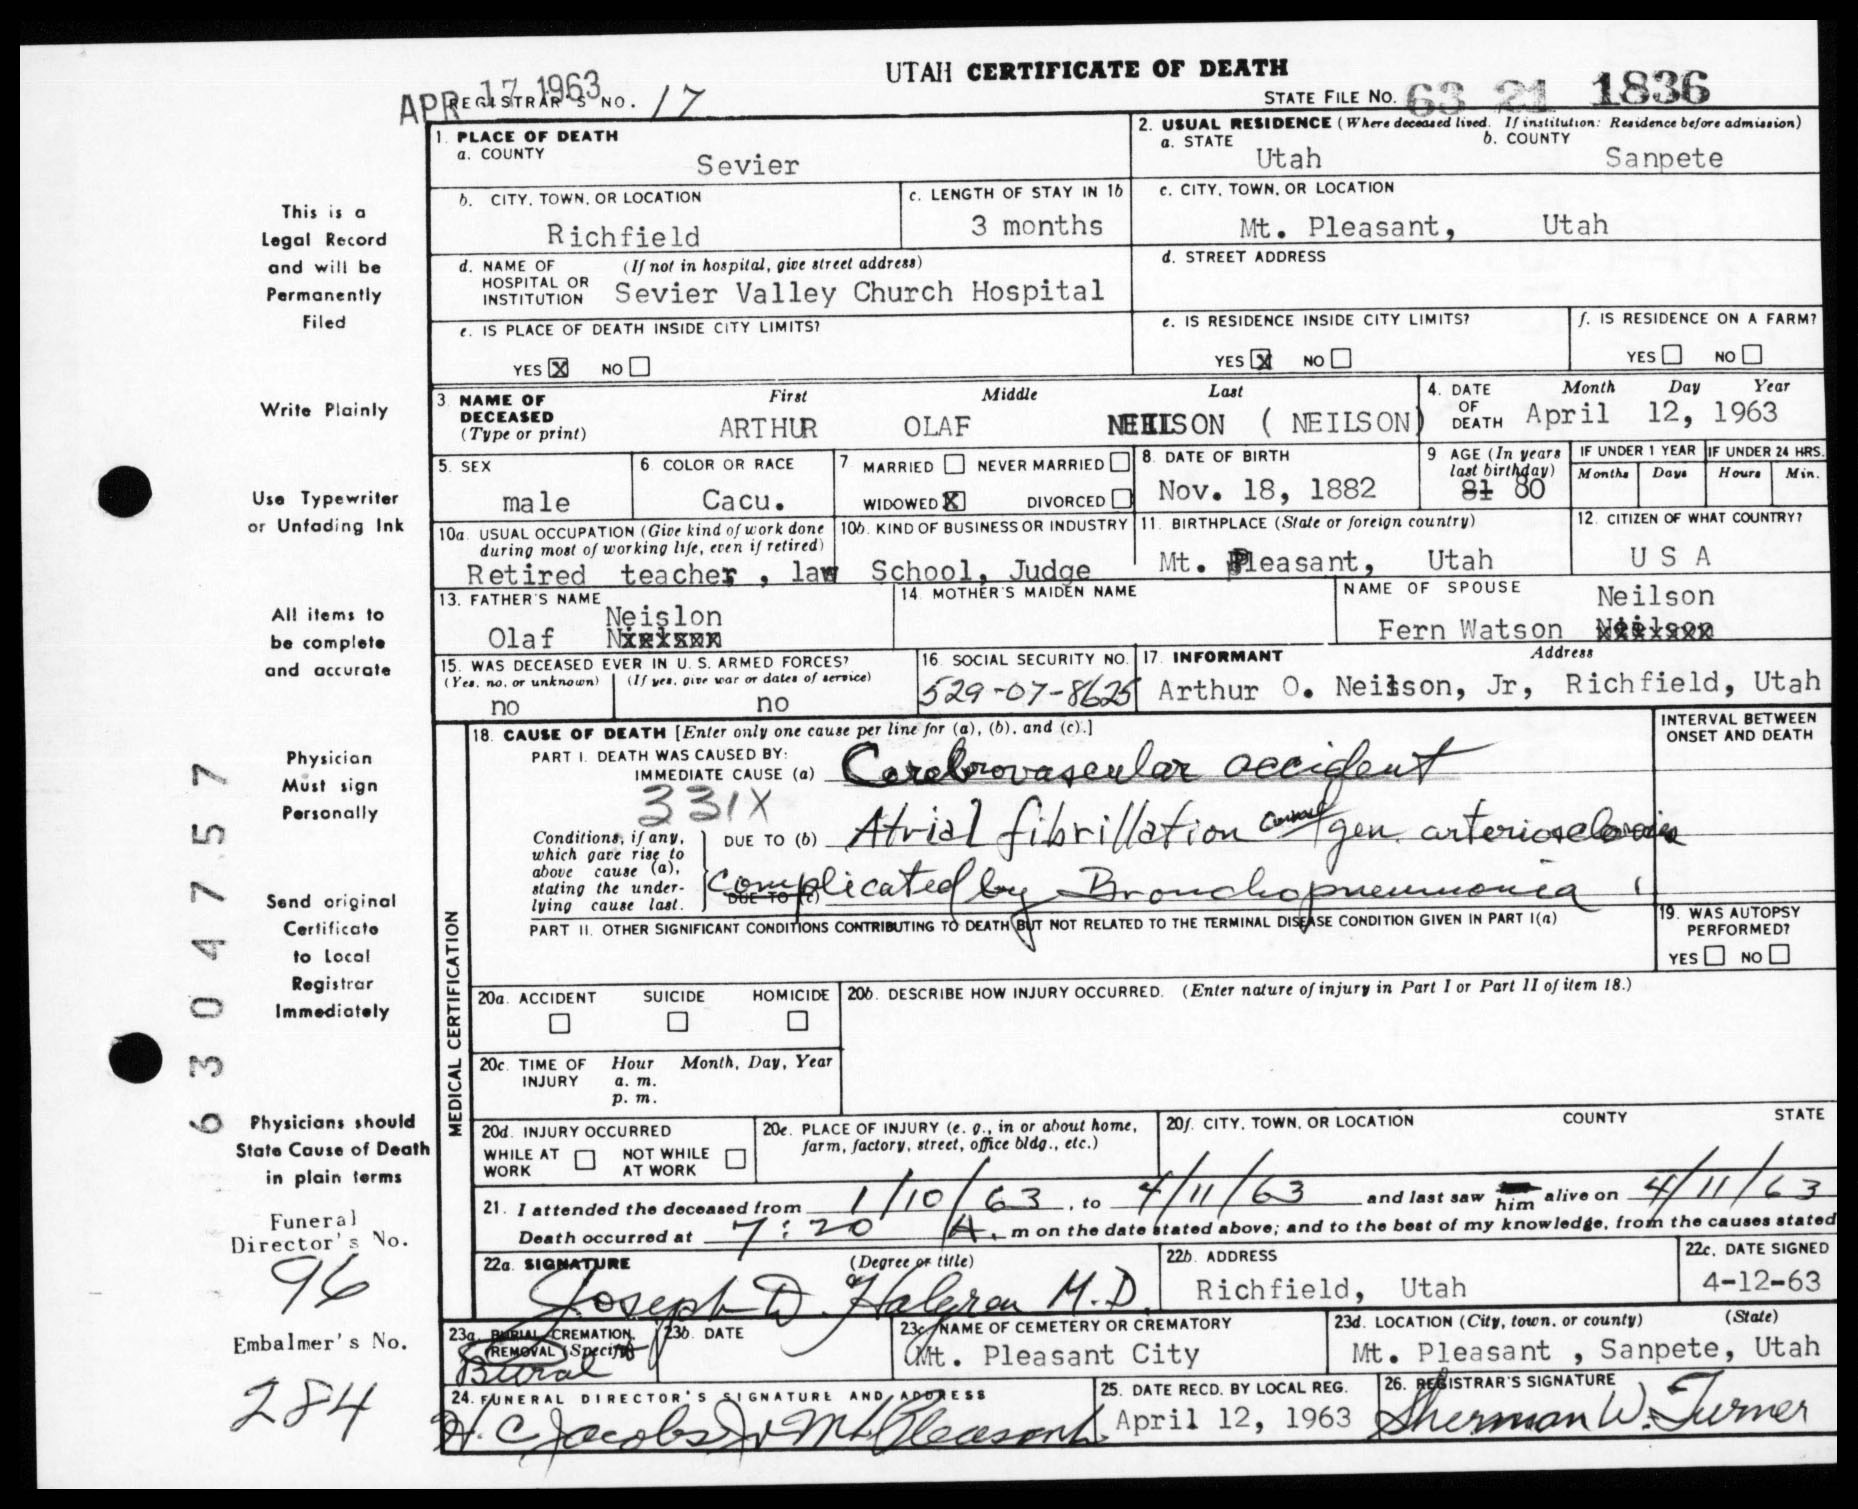 UTAH CERTIFICATE OF DEATH
APR 17 1963
REGISTRAR'S NO. 17
STATE FILE NO. 63 21 1836
1. PLACE OF DEATH
a. COUNTY
Sevier
2. USUAL RESIDENCE (Where deceased lived. If institution: Residence before admission)
a. STATE
Utah
b. COUNTY
Sanpete
b. CITY, TOWN, OR LOCATION
Richfield
c. LENGTH OF STAY IN 1b
3 months
c. CITY, TOWN, OR LOCATION
Mt. Pleasant, Utah
d. NAME OF HOSPITAL OR INSTITUTION (If not in hospital, give street address)
Sevier Valley Church Hospital
d. STREET ADDRESS
e. IS PLACE OF DEATH INSIDE CITY LIMITS?
YES X NO
e. IS RESIDENCE INSIDE CITY LIMITS?
YES X NO
f. IS RESIDENCE ON A FARM?
YES NO
3. NAME OF DECEASED (Type or print)
First Middle Last
ARTHUR OLAF NEILSON ( NEILSON)
4. DATE OF DEATH
Month Day Year
April 12, 1963
5. SEX
male
6 COLOR OR RACE
Cacu.
7 MARRIED NEVER MARRIED
WIDOWED X DIVORCED
8. DATE OF BIRTH
Nov. 18, 1882
9 AGE (In years last birthday)
81 80
IF UNDER 1 YEAR
Months Days
IF UNDER 24 HRS.
Hours Min.
10a. USUAL OCCUPATION (Give kind of work done during most of working life, even if retired)
Retired teacher, law
10b. KIND OF BUSINESS OR INDUSTRY
School, Judge
11. BIRTHPLACE (State or foreign country)
Mt. Pleasant, Utah
12. CITIZEN OF WHAT COUNTRY?
U S A
13. FATHER'S NAME
Neislon
Olaf
14. MOTHER'S MAIDEN NAME
NAME OF SPOUSE
Neilson
Fern Watson
15. WAS DECEASED EVER IN U. S. ARMED FORCES?
(Yes, no, or unknown) (If yes, give war or dates of service)
no no
16. SOCIAL SECURITY NO.
529-07-8625
17. INFORMANT Address
Arthur O. Neilson, Jr, Richfield, Utah
18. CAUSE OF DEATH [Enter only one cause per line for (a), (b), and (c).]
INTERVAL BETWEEN ONSET AND DEATH
PART I. DEATH WAS CAUSED BY:
IMMEDIATE CAUSE (a) Cerebrovascular accident
331X
Conditions, if any, which gave rise to above cause (a), stating the underlying cause last.
DUE TO (b) Atrial fibrillation gen arteriosclerosis
DUE TO (c) complicated by Bronchopneumonia
PART II. OTHER SIGNIFICANT CONDITIONS CONTRIBUTING TO DEATH BUT NOT RELATED TO THE TERMINAL DISEASE CONDITION GIVEN IN PART I(a)
19. WAS AUTOPSY PERFORMED?
YES NO
MEDICAL CERTIFICATION
20a. ACCIDENT SUICIDE HOMICIDE
20b. DESCRIBE HOW INJURY OCCURRED. (Enter nature of injury in Part I or Part II of item 18.)
20c. TIME OF INJURY Hour Month, Day, Year
a. m.
p. m.
20d. INJURY OCCURRED
WHILE AT WORK NOT WHILE AT WORK
20e. PLACE OF INJURY (e. g., in or about home, farm, factory, street, office bldg., etc.)
20f. CITY, TOWN, OR LOCATION COUNTY STATE
21. I attended the deceased from 1/10/63, to 4/11/63 and last saw him alive on 4/11/63
Death occurred at 7:20 A. m on the date stated above; and to the best of my knowledge, from the causes stated
22a. SIGNATURE (Degree or title)
Joseph D. Halgren M.D.
22b. ADDRESS
Richfield, Utah
22c. DATE SIGNED
4-12-63
23a. BURIAL, CREMATION, REMOVAL (Specify)
Burial
23b. DATE
23c. NAME OF CEMETERY OR CREMATORY
Mt. Pleasant City
23d. LOCATION (City, town, or county) (State)
Mt. Pleasant , Sanpete, Utah
24. FUNERAL DIRECTOR'S SIGNATURE AND ADDRESS
H. C. Jacobs Jr Mt. Pleasant.
25. DATE RECD. BY LOCAL REG.
April 12, 1963
26. REGISTRAR'S SIGNATURE
Sherman W. Turner
This is a
Legal Record
and will be
Permanently
Filed
Write Plainly
Use Typewriter
or Unfading Ink
All items to
be complete
and accurate
Physician
Must sign
Personally
Send original
Certificate
to Local
Registrar
Immediately
Physicians should
State Cause of Death
in plain terms
Funeral
Director's No.
96
Embalmer's No.
284
6304757